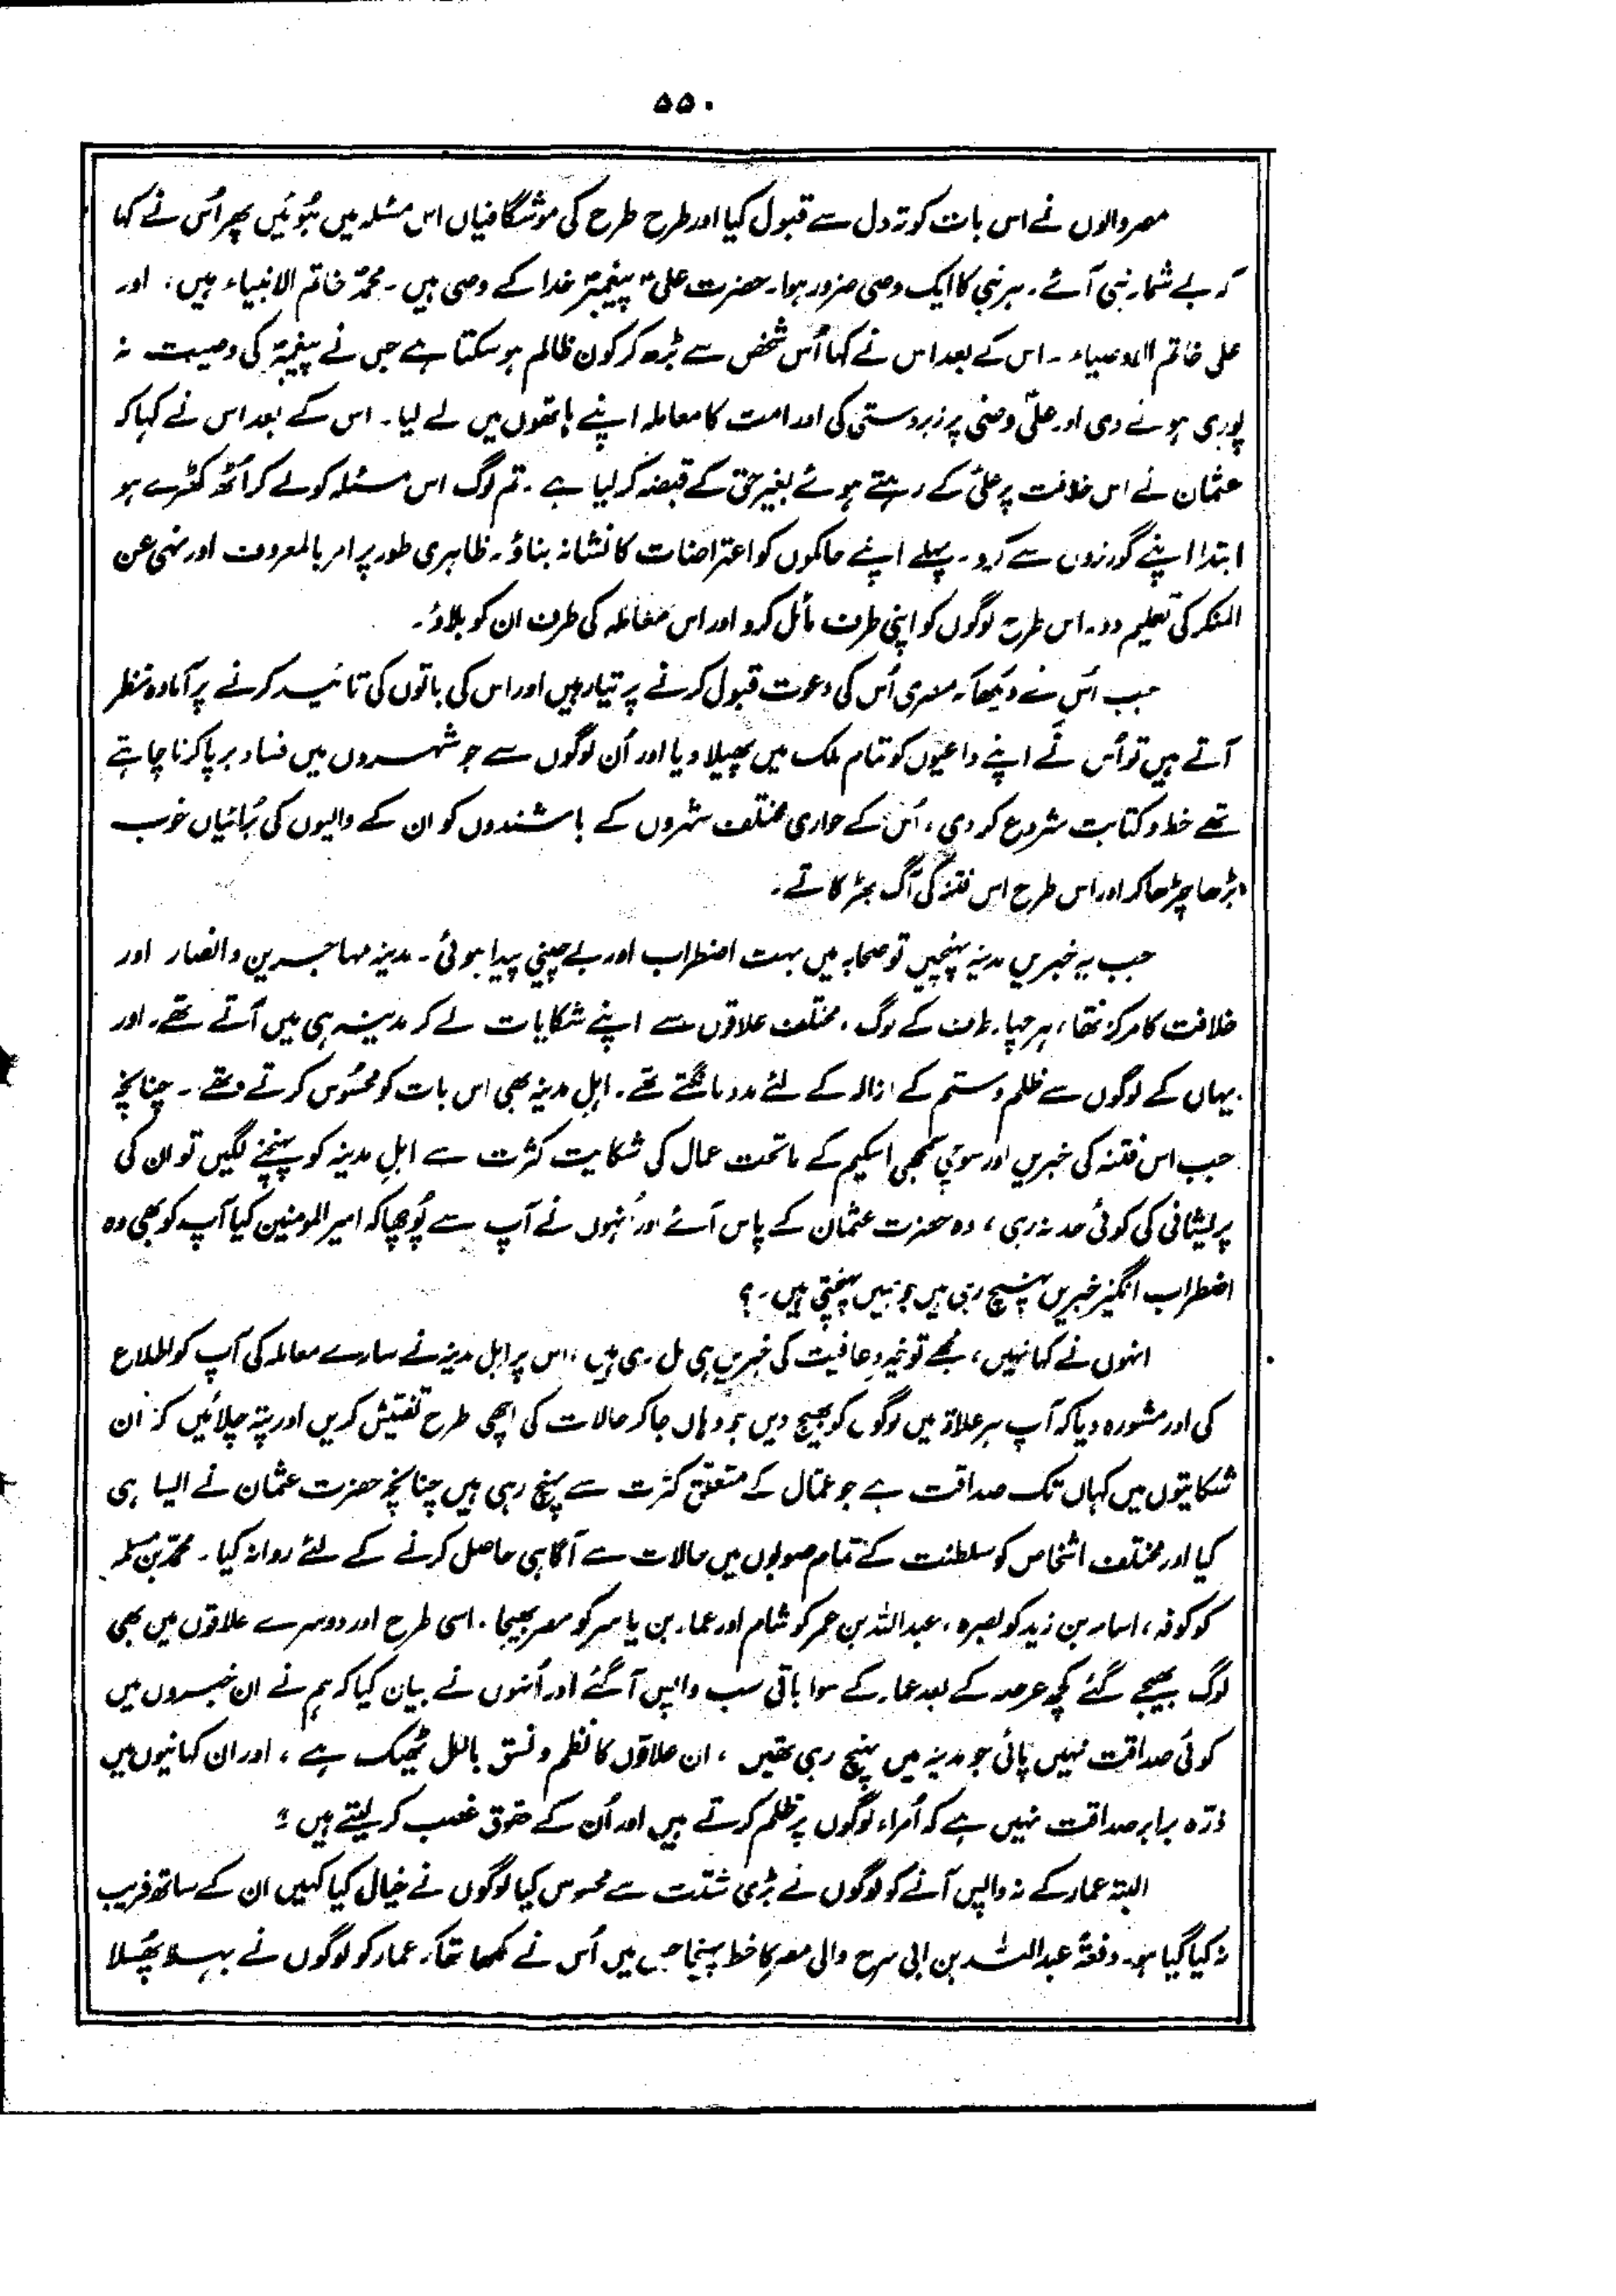 ۵۵۰
مصر والوں نے اس بات کو تہ دل سے قبول کیا اور طرح طرح کی موشگافیاں اس مسئلہ میں ہُوئیں پھر اُس نے کہا
کہ بے شمار نبی آئے۔ ہر نبی کا ایک وصی ضرور ہوا۔ حضرت علیؑ پیغمبرؐ خدا کے وصی ہیں۔ محمدؐ خاتم الانبیاء ہیں، اور
علی خاتم الاوصیاء ۔ اس کے بعد اس نے کہا اُس شخص سے بڑھ کر کون ظالم ہو سکتا ہے جس نے پیغمبرؐ کی وصیت نہ
پوری ہونے دی اور علیؑ وصی پر زبردستی کی اور امت کا معاملہ اپنے ہاتھوں میں لے لیا۔ اس کے بعد اس نے کہا کہ
عثمان نے اس خلافت پر علیؑ کے رہتے ہوئے بغیر حق کے قبضہ کر لیا ہے۔ تم لوگ اس مسئلہ کو لے کر اُٹھ کھڑے ہو
ابتدا اپنے گورنروں سے کرو۔ پہلے اپنے حاکموں کو اعتراضات کا نشانہ بناؤ۔ ظاہری طور پر امر بالمعروف اور نہی عن
المنکر کی تعلیم دو۔ اس طرح لوگوں کو اپنی طرف مائل کرو اور اس معاملہ کی طرف ان کو بلاؤ۔
جب اُس نے دیکھا کہ مصری اُس کی دعوت قبول کرنے پر تیار ہیں اور اس کی باتوں کی تائید کرنے پر آمادہ نظر
آتے ہیں تو اُس نے اپنے داعیوں کو تمام ملک میں پھیلا دیا اور اُن لوگوں سے جو شہروں میں فساد برپا کرنا چاہتے
تھے خط و کتابت شروع کر دی، اُس کے حواری مختلف شہروں کے باشندوں کو ان کے والیوں کی بُرائیاں خوب
بڑھا چڑھا کر اور اس طرح اس فتنہ کی آگ بھڑکاتے۔
جب یہ خبریں مدینہ پہنچیں تو صحابہ میں بہت اضطراب اور بے چینی پیدا ہوئی۔ مدینہ مہاجرین و انصار اور
خلافت کا مرکز تھا، ہر چہار طرف کے لوگ، مختلف علاقوں سے اپنے شکایات لے کر مدینہ ہی میں آتے تھے۔ اور
یہاں کے لوگوں سے ظلم و ستم کے ازالہ کے لئے مدد مانگتے تھے۔ اہلِ مدینہ بھی اس بات کو محسُوس کرتے تھے۔ چنانچہ
جب اس فتنہ کی خبریں اور سوچی سمجھی اسکیم کے ماتحت عمال کی شکایت کثرت سے اہلِ مدینہ کو پہنچنے لگیں تو ان کی
پریشانی کی کوئی حد نہ رہی، وہ حضرت عثمان کے پاس آئے اور اُنہوں نے آپ سے پُوچھا کہ امیرالمومنین کیا آپ کو بھی وہ
اضطراب انگیز خبریں پہنچ رہی ہیں جو ہمیں پہنچتی ہیں۔؟
انہوں نے کہا نہیں، مجھے تو خیر و عافیت کی خبریں ہی مل رہی ہیں، اس پر اہل مدینہ نے سارے معاملہ کی آپ کو اطلاع
کی اور مشورہ دیا کہ آپ ہر علاقہ میں لوگوں کو بھیج دیں جو وہاں جا کر حالات کی اچھی طرح تفتیش کریں اور پتہ چلائیں کہ ان
شکایتوں میں کہاں تک صداقت ہے جو عمّال کے متعلق کثرت سے پہنچ رہی ہیں چنانچہ حضرت عثمان نے ایسا ہی
کیا اور مختلف اشخاص کو سلطنت کے تمام صوبوں میں حالات سے آگاہی حاصل کرنے کے لئے روانہ کیا۔ محمدؓ بن مسلمہ
کو کوفہ، اسامہ بن زید کو بصرہ، عبداللہ بن عمر کو شام اور عمار بن یاسر کو مصر بھیجا۔ اسی طرح اور دوسرے علاقوں میں بھی
لوگ بھیجے گئے کچھ عرصہ کے بعد عمار کے سوا باقی سب واپس آ گئے اور اُنہوں نے بیان کیا کہ ہم نے ان خبروں میں
کوئی صداقت نہیں پائی جو مدینہ میں پہنچ رہی تھیں، ان علاقوں کا نظم و نسق بالکل ٹھیک ہے، اور ان کہانیوں میں
ذرّہ برابر صداقت نہیں ہے کہ اُمراء لوگوں پر ظلم کرتے ہیں اور اُن کے حقوق غصب کر لیتے ہیں؟
البتہ عمار کے نہ واپس آنے کو لوگوں نے بڑی شدّت سے محسوس کیا لوگوں نے خیال کیا کہیں ان کے ساتھ فریب
نہ کیا گیا ہو۔ دفعۃً عبداللہ بن ابی سرح والی مصر کا خط پہنچا جس میں اُس نے لکھا تھا کہ عمار کو لوگوں نے بہلا پھُسلا